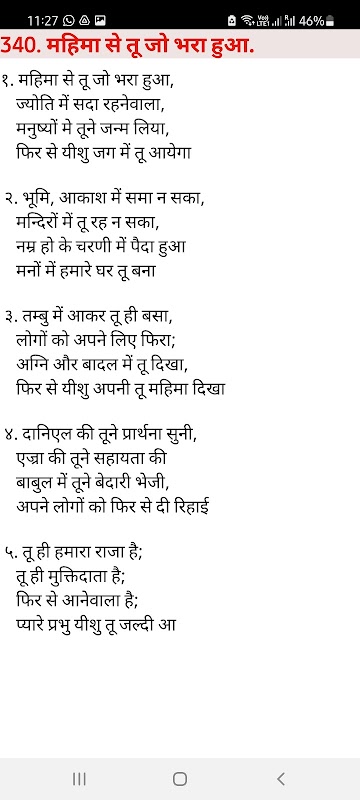 11:27
46%
340. महिमा से तू जो भरा हुआ.
१. महिमा से तू जो भरा हुआ,
ज्योति में सदा रहनेवाला,
मनुष्यों मे तूने जन्म लिया,
फिर से यीशु जग में तू आयेगा
२. भूमि, आकाश में समा न सका,
मन्दिरों में तू रह न सका,
नम्र हो के चरणी में पैदा हुआ
मनों में हमारे घर तू बना
३. तम्बु में आकर तू ही बसा,
लोगों को अपने लिए फिरा;
अग्नि और बादल में तू दिखा,
फिर से यीशु अपनी तू महिमा दिखा
४. दानिएल की तूने प्रार्थना सुनी,
एज्रा की तूने सहायता की
बाबुल में तूने बेदारी भेजी,
अपने लोगों को फिर से दी रिहाई
५. तू ही हमारा राजा है;
तू ही मुक्तिदाता है;
फिर से आनेवाला है;
प्यारे प्रभु यीशु तू जल्दी आ